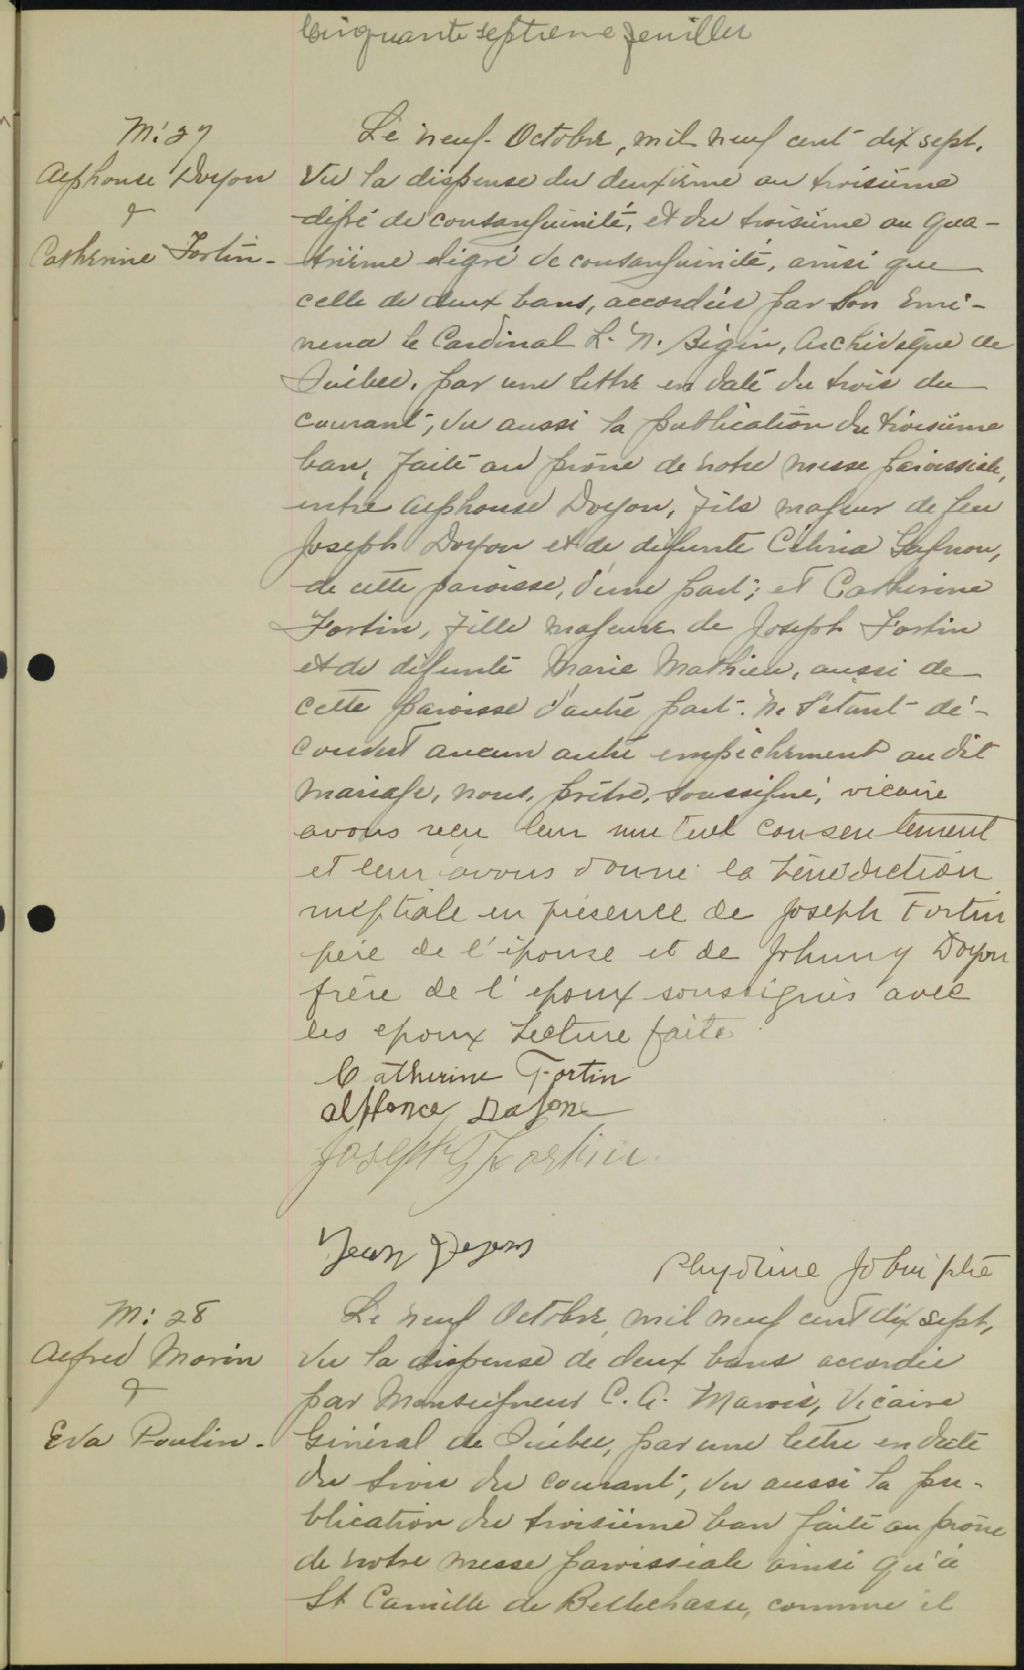 Cinquante septième feuillet
M: 27
Alphonse Doyon
&
Catherine Fortin -
Le neuf Octobre, mil neuf cent dix sept,
Vu la dispense du deuxième au troisième
degré de consanguinité, et du troisième au qua-
trième degré de consanguinité, ainsi que
celle de deux bans, accordées par Son Emi-
nence le Cardinal L. N. Bégin, Archevêque de
Québec, par une lettre en date du trois du
courant; vu aussi la publication du troisième
ban, faite au prône de notre messe paroissiale,
entre Alphonse Doyon, fils majeur de feu
Joseph Doyon et de défunte Célina Gagnon,
de cette paroisse, d'une part; et Catherine
Fortin, fille majeure de Joseph Fortin
et de défunte Marie Mathieu, aussi de
cette paroisse d'autre part. Ne s'étant dé-
couvert aucun autre empêchement au dit
mariage, nous, prêtre, soussigné, vicaire
avons reçu leur mutuel consentement
et leur avons donné la bénédiction
nuptiale en présence de Joseph Fortin
père de l'épouse et de Johnny Doyon
frère de l'époux soussignés avec
les epoux Lecture faite
Catherine Fortin
Joseph Fortin
Jean
Phydime Jobin ptre
M: 28
Alfred Morin
&
Eva Poulin -
Le neuf Octobre, mil neuf cent dix sept,
Vu la dispense de deux bans accordée
par Monseigneur C. A. Marois, Vicaire
Général de Québec, par une lettre en date
du trois du courant; vu aussi la pu-
blication du troisième ban faite au prône
de notre messe paroissiale ainsi qu'à
St Camille de Bellechasse, comme il